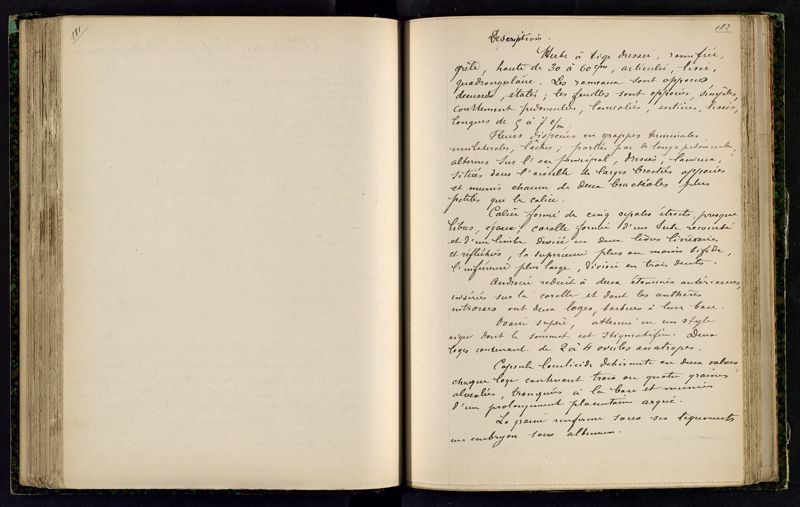 181
182
Description.
Herbe à tige dressée, ramifiée,
grêle, haute de 30 à 60 c/m, articulée, lisse,
quadrangulaire. Les rameaux sont opposés
decussés, étalés; les feuilles sont opposées, simples,
courtement pédonculées, lancéolées, entières, lisses,
longues de 5 à 7 c/m.
Fleurs disposées en grappes terminales
unilatérales, lâches; portées par de longs pédoncules,
alternes sur l'axe principal, dressés,
situées dans l'aisselle de larges bractées opposées
et munis chacun de deux bractéoles plus
petites que le calice.
Calice formé de cinq sépales étroits, presque
libres, égaux; corolle formée d'un tube recourbé
et d'un limbe divisé en deux lèvres linéaires
et réfléchies, la supérieure plus ou moins bifide,
l'inférieure plus large, divisée en trois dents.
Androcée réduit à deux étamines antérieures,
insérées sur la corolle et dont les anthères
introrses ont deux loges, barbues à leur base.
Ovaire supère, atténué en un style
aigu dont le sommet est stigmatifère. Deux
loges contenant de 2 à 4 ovules anatropes.
Capsule loculicide déhiscente en deux valves,
chaque loge contenant trois ou quatre graines
alvéolées, tronquées à la base et munies
d'un prolongement placentaire arqué.
La graine renferme sous ses téguments
un embryon sans albumen.